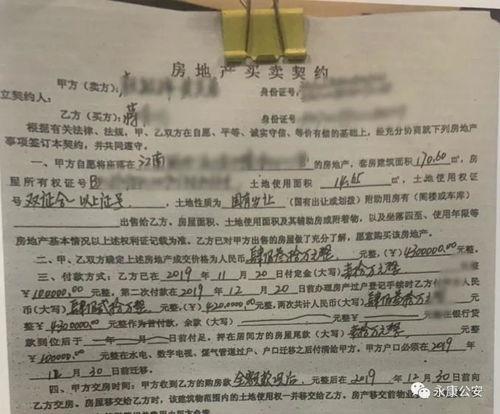 房地产买卖契约
甲方（卖方）： 身份证号：
立契约人：
乙方（买方）：蒋 身份证号：
根据有关法律、法规，甲、乙双方在自愿、平等、诚实守信、等价有偿的基础上，经充分协商就下列房地产
事项签订本契约，并共同遵守。
一、甲方自愿将座落在 江南 的房地产，套房建筑面积 170.60 ㎡，房
屋所有权证号 B 土地使用面积 14.65 ㎡，土地使用权证
号 双证合一以上证号，土地性质为 国有出让 （国有出让或划拨）附助用房有（阁楼或车库）
出售给乙方，房屋面积、土地使用面积及其辅助房或附着物，以及坐落四至、使用年限等
房地产基本情况以上述权利证记载为准。乙方已对甲方出售的房屋做了充分了解，愿意购买该房地产。
二、甲、乙双方确定上述房地产成交价格为人民币 肆佰叁拾万元整，（￥）4300000.00 元。
三、付款方式：乙方已在 2019 年 11 月 20 日付定金（大写） 壹拾万元整
￥ 100000.00 元整。第二次付款在 2019 年 12 月 20 日前办房产过户登记手续时付乙方人民
币（大写）肆佰贰拾万元整，（￥）4200000.00 元整，两次共计人民币（大写）肆佰叁拾万元
整￥ 4300000 元整作为首付款，余款（大写） 元整 元整以银行贷
款到位后于 一 年 月 日前付足。押在居间方的房屋尾款（大写）壹拾万元整
￥ 100000.00 元整在水电、数字电视、煤气管道过户、户口迁移之后付清给甲方。甲方户口必须在 2019 年
12 月 30 日前迁移。
四、甲方交房时间：甲方收到乙方的购房款 全额款项后 元整后在 2019 年 12 月 30 日前
乙方交房。房屋移交给乙方时，该建筑物范围内的土地使用权一并移交给乙方。房产移交前物业
永康公安